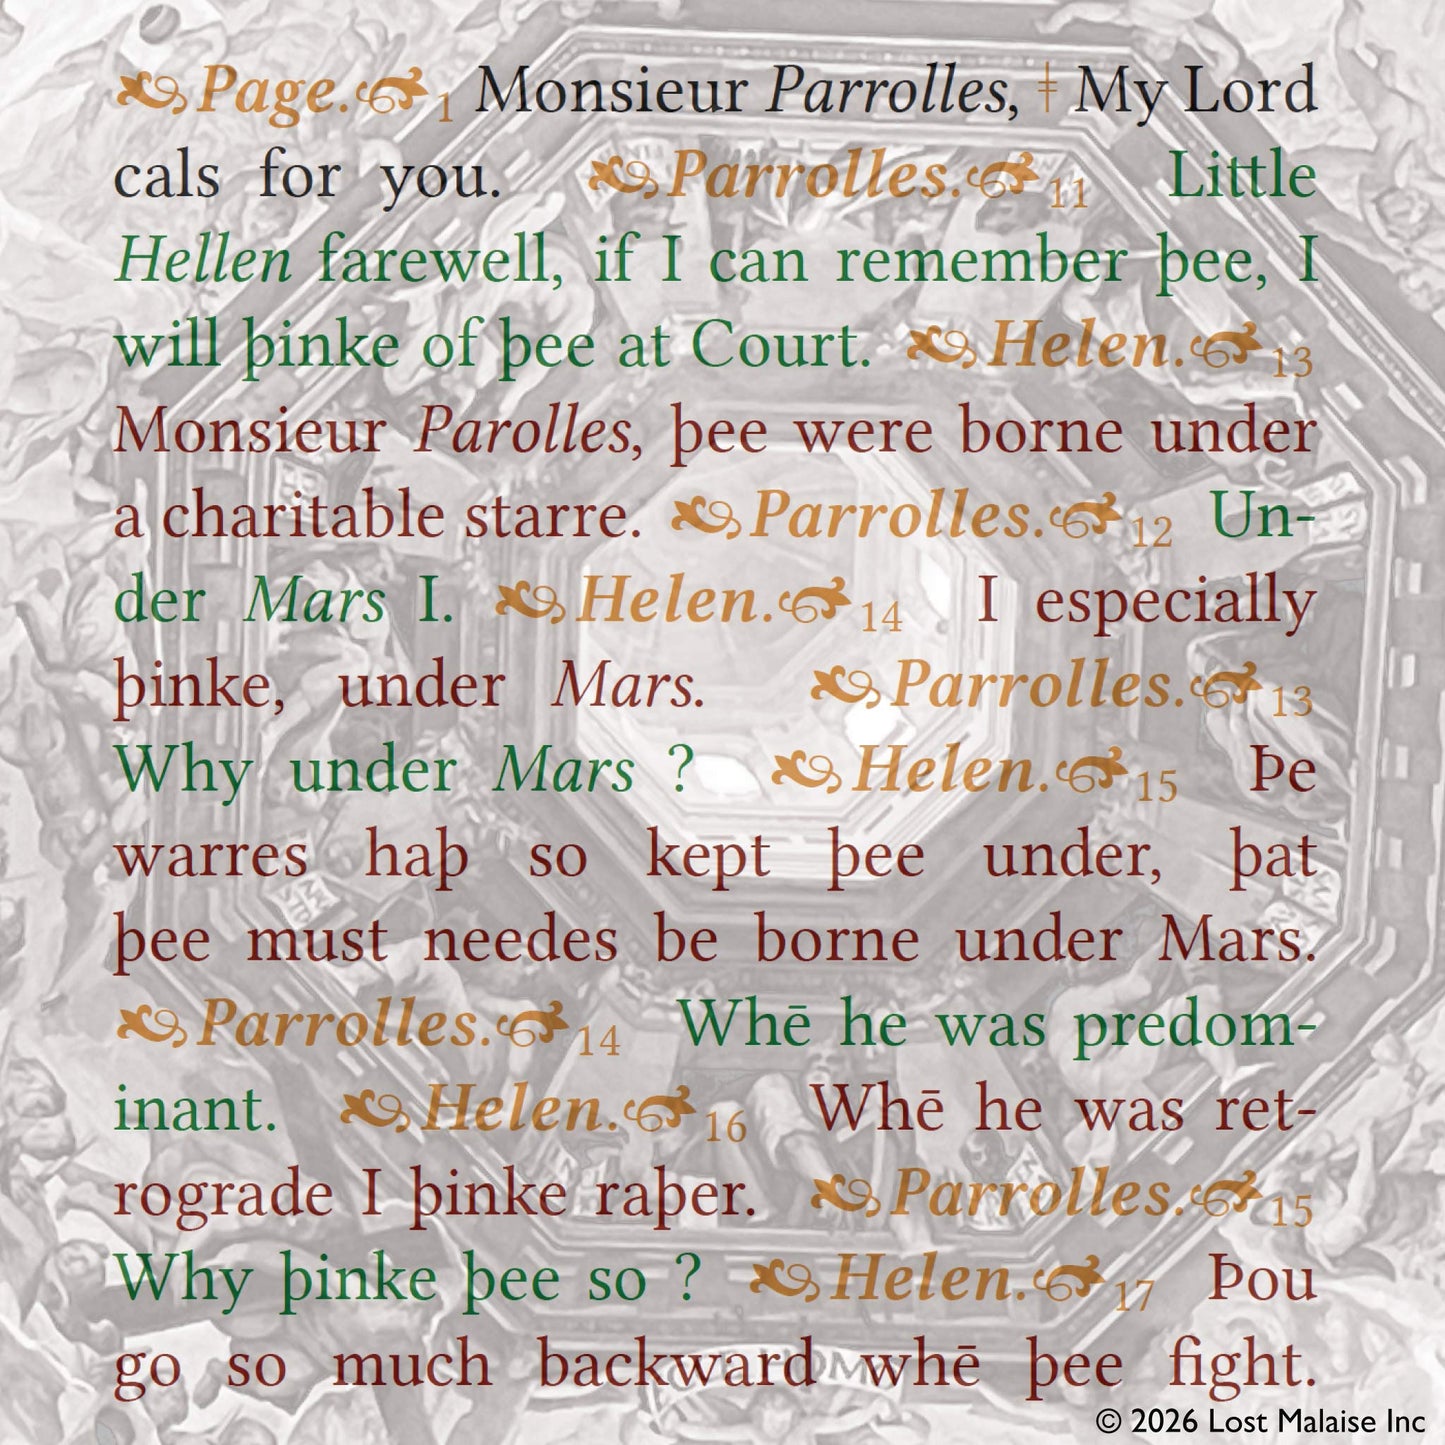 Page. 1 Monsieur Parrolles, ǂ My Lord
cals for you. Parrolles. 11 Little
Hellen farewell, if I can remember þee, I
will þinke of þee at Court. Helen. 13
Monsieur Parolles, þee were borne under
a charitable starre. Parrolles. 12 Un-
der Mars I. Helen. 14 I especially
þinke, under Mars. Parrolles. 13
Why under Mars ? Helen. 15 Þe
warres haþ so kept þee under, þat
þee must needes be borne under Mars.
Parrolles. 14 Whē he was predom-
inant. Helen. 16 Whē he was ret-
rograde I þinke raþer. Parrolles. 15
Why þinke þee so ? Helen. 17 Þou
go so much backward whē þee fight.
© 2026 Lost Malaise Inc